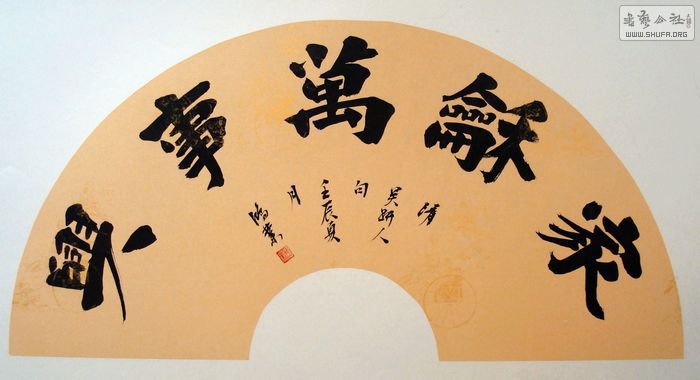 家龢萬事興
清
吳趼人
句
壬辰夏
月
書藝公社
WWW.SHUFA.ORG